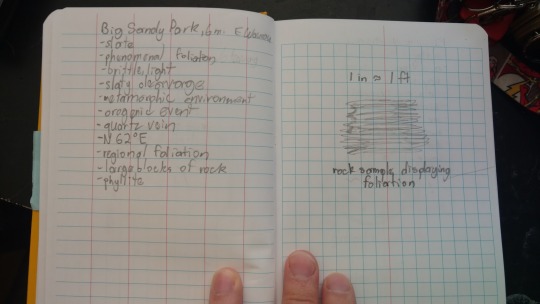 Big Sandy Park, 
-slate
-phenomenal foliation
-brittle, light
-slaty cleavage
-metamorphic environment
-orogenic event
-quartz vein
-N 62°E
-regional foliation
-large blocks of rock
-phyllite
1 in ≈ 1 ft
rock sample displaying
foliation